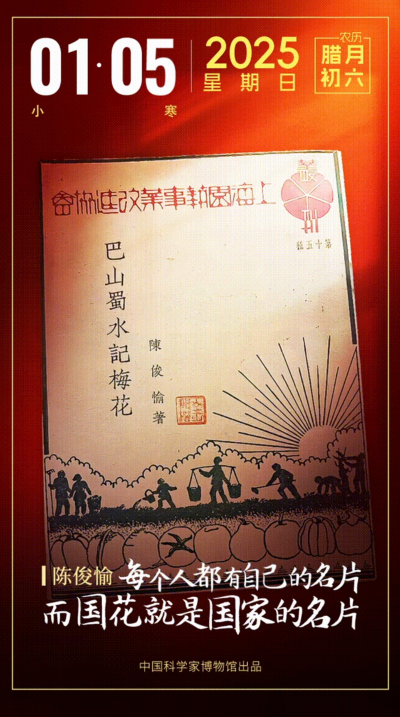 01·05
2025
星期日
农历
腊月
初六
小寒
上海園執事業改進協會
第十五種
巴山蜀水記梅花
陳俊愉著
陈俊愉 每个人都有自己的名片
而国花就是国家的名片
中国科学家博物馆出品